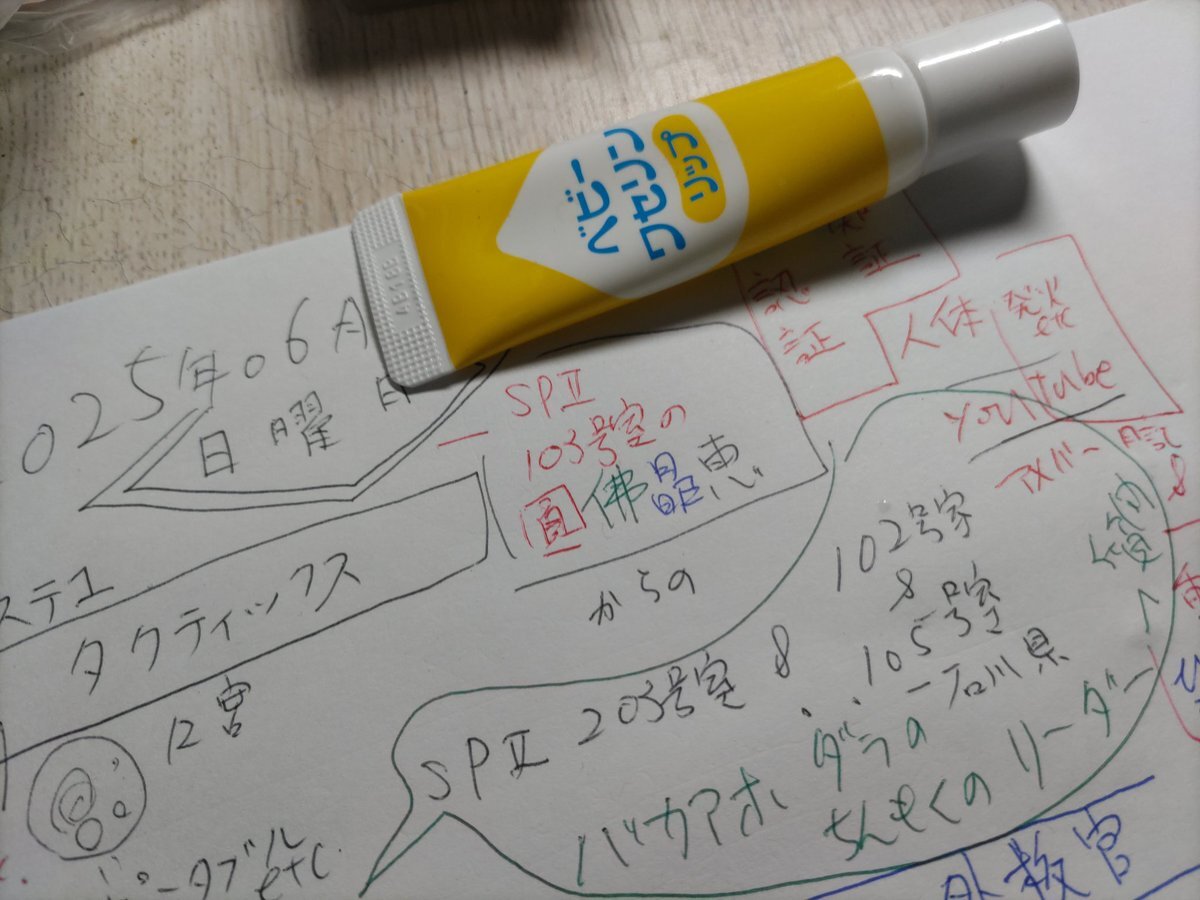 ベビー
ワセリン
リップ
025年06月
日曜日
SPII
103号室の
圓佛晶恵
からの
認証
証
人体
発火
etc
YouTube
102号家
&
105号室
石川県
タクティックス
12宮
ポータブル
etc.
SPII 203号室 &
バカアホ ダラの
ちんもくの リーダー